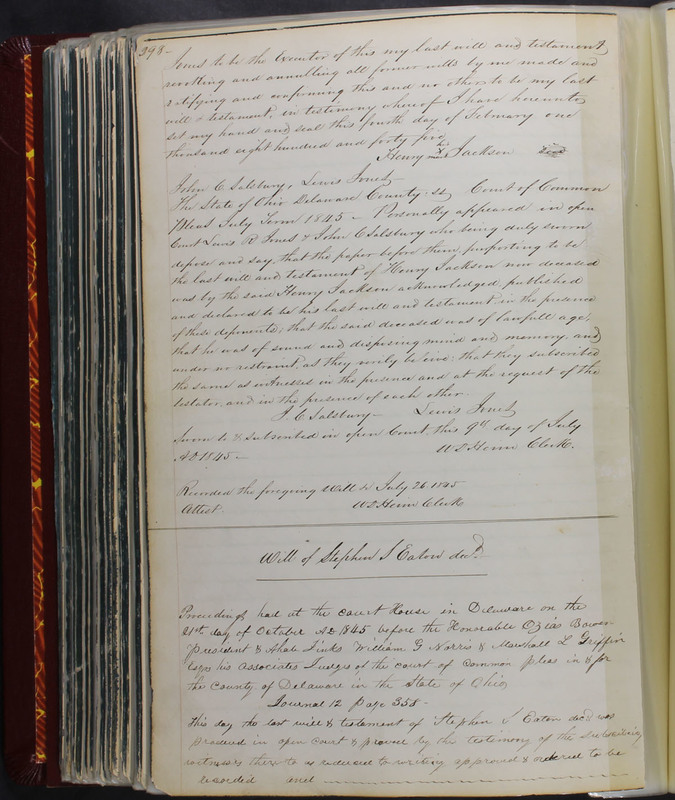 398-
Jones to be the Executor of this my last will and testament,
revoking and annulling all former wills by me made and
ratifying and confirming this and no other to be my last
will & testament, in testimony whereof I have hereunto
set my hand and seal this fourth day of February one
thousand eight hundred and forty five
Henry his X mark Jackson Seal
John C Salsbury, Lewis Jones
The State of Ohio Delaware County, ss Court of Common
Pleas July Term 1845 - Personally appeared in open
Court Lewis R Jones & John C Salsbury who being duly sworn
depose and say, that the paper before them, purporting to be
the last will and testament of Henry Jackson now deceased
was by the said Henry Jackson acknowledged, published
and declared to be his last will and testament in the presence
of these deponents; that the said deceased was of lawfull age,
that he was of sound and disposing mind and memory, and
under no restraint, as they verily believe; that they subscribed
the same as witnesses in the presence and at the request of the
testator, and in the presence of each other.
J. C Salsbury - Lewis Jones
Sworn to & subscribed in open Court, this 9th day of July
AD 1845 - Clerk.
Recorded the foregoing Will &c July 26. 1845
Attest. Clerk
Will of Stephen S Eaton decd
Proceedings had at the court House in Delaware on the
21st day of October AD 1845 before the Honorable Ozias Bowen
President & Ahab Jinks William G Norris & Marshall L Griffin
Esqrs his Associates Judges of the court of common pleas in & for
the County of Delaware in the State of Ohio
Journal 12 Page 358 -
This day the last will & testament of Stephen S Eaton decd was
produced in open court & proven by the testimony of the subscribing
witnesses thereto as reduced to writing approved & ordered to be
recorded and